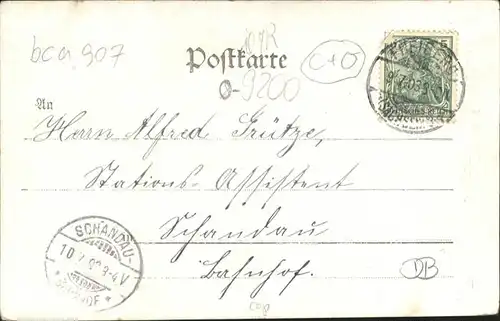 bca 907
10 R
Postkarte
C+O
0-9200
An
Herrn Alfred Grütze,
Stations-Assistent
Schandau
Bahnhof.
SCHANDAU-
10 7 8-4V
BAHNHOF
DB
5